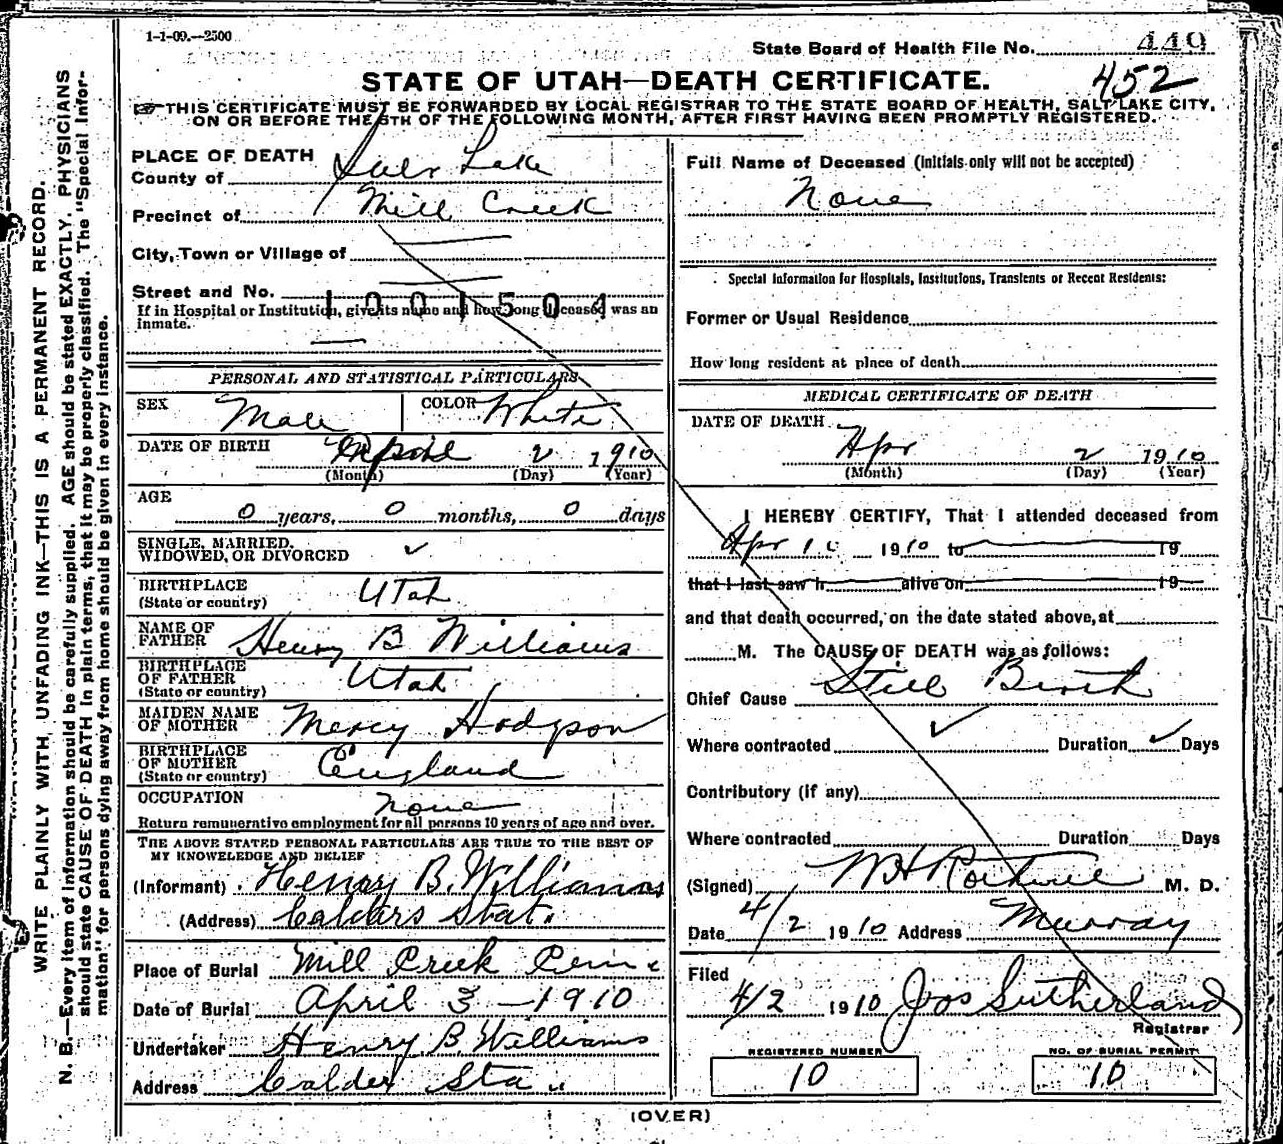 1-1-09.—2500
State Board of Health File No. 449
STATE OF UTAH—DEATH CERTIFICATE. 452
THIS CERTIFICATE MUST BE FORWARDED BY LOCAL REGISTRAR TO THE STATE BOARD OF HEALTH, SALT LAKE CITY,
ON OR BEFORE THE 5TH OF THE FOLLOWING MONTH, AFTER FIRST HAVING BEEN PROMPTLY REGISTERED.
WRITE PLAINLY WITH UNFADING INK—THIS IS A PERMANENT RECORD.
N. B.—Every item of information should be carefully supplied. AGE should be stated EXACTLY. PHYSICIANS
should state CAUSE OF DEATH in plain terms, that it may be properly classified. The "Special Infor-
mation" for persons dying away from home should be given in every instance.
PLACE OF DEATH
County of Salt Lake
Precinct of Mill Creek
City, Town or Village of
Street and No.
1001504
If in Hospital or Institution, give its name and how long deceased was an
inmate.
PERSONAL AND STATISTICAL PARTICULARS
SEX Male COLOR White
DATE OF BIRTH April 2 1910
(Month) (Day) (Year)
AGE
0 years, 0 months, 0 days
SINGLE, MARRIED,
WIDOWED, OR DIVORCED ✓
BIRTHPLACE
(State or country) Utah
NAME OF
FATHER Henry B Williams
BIRTHPLACE
OF FATHER
(State or country) Utah
MAIDEN NAME
OF MOTHER Mercy Hodgson
BIRTHPLACE
OF MOTHER
(State or country) England
OCCUPATION none
Return remunerative employment for all persons 10 years of age and over.
THE ABOVE STATED PERSONAL PARTICULARS ARE TRUE TO THE BEST OF
MY KNOWLEDGE AND BELIEF
(Informant) Henry B. Williams
(Address) Calders Stat.
Place of Burial Mill Creek Cem
Date of Burial April 3 - 1910
Undertaker Henry B. Williams
Address Calder Sta
Full Name of Deceased (Initials only will not be accepted)
None
Special Information for Hospitals, Institutions, Transients or Recent Residents:
Former or Usual Residence
How long resident at place of death
MEDICAL CERTIFICATE OF DEATH
DATE OF DEATH
Apr 2 1910
(Month) (Day) (Year)
I HEREBY CERTIFY, That I attended deceased from
Apr 1910 to 19
that I last saw h alive on 19
and that death occurred, on the date stated above, at
M. The CAUSE OF DEATH was as follows:
Chief Cause Still Birth
Where contracted ✓ Duration ✓ Days
Contributory (if any)
Where contracted Duration Days
(Signed) M. D.
Date 4/2 1910 Address Murray
Filed
4/2 1910 Jos Sutherland
Registrar
REGISTERED NUMBER NO. OF BURIAL PERMIT
10 10
(OVER)